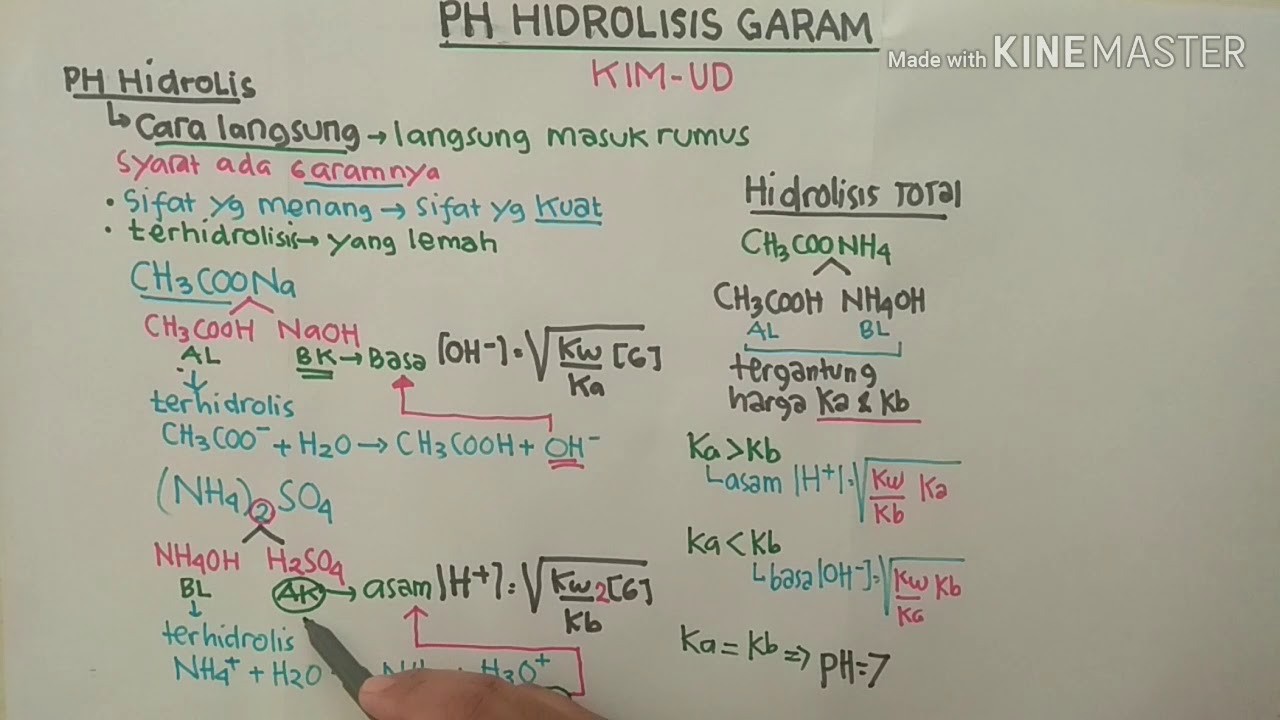 PH HIDROLISIS GARAM
Made with KINEMASTER
KIM-UD
PH HidroLis
↳ Cara langsung → langsung masuk rumus
Syarat ada Garamnya
• Sifat yg menang → Sifat yg Kuat
• terhidrolisis → yang lemah
CH3COONa
CH3COOH NaOH
AL BK → Basa [OH-] = √Kw/Ka [G]
↓
terhidrolis
CH3COO- + H2O → CH3COOH + OH-
(NH4)2SO4
NH4OH H2SO4
BL AK → asam |H+| = √Kw/Kb 2[G]
↓
terhidrolis
NH4+ + H2O H3O+
Hidrolisis TOTAL
CH3COONH4
CH3COOH NH4OH
AL BL
tergantung
harga Ka & Kb
Ka > Kb
↳ asam |H+| = √Kw/Kb Ka
Ka < Kb
↳ basa |OH-| = √Kw/Ka Kb
Ka = Kb => PH = 7